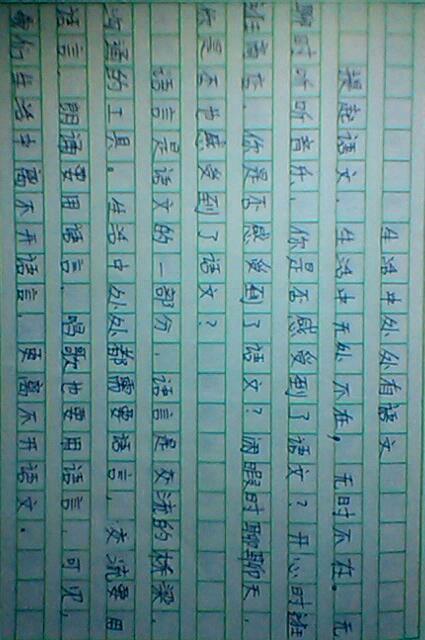 生活中处处有语文
提起语文，生活中无处不在，无时不在。无
聊时听听音乐，你是否感受到了语文？开心时逛
逛商店，你是否感受到了语文？闲暇时聊聊天，
你是否也感受到了语文？
语言是语文的一部分，语言是交流的桥梁，
沟通的工具。生活中处处都需要语言，交流要用
语言，朗诵要用语言，唱歌也要用语言，可见，
我们生活中离不开语言，更离不开语文。